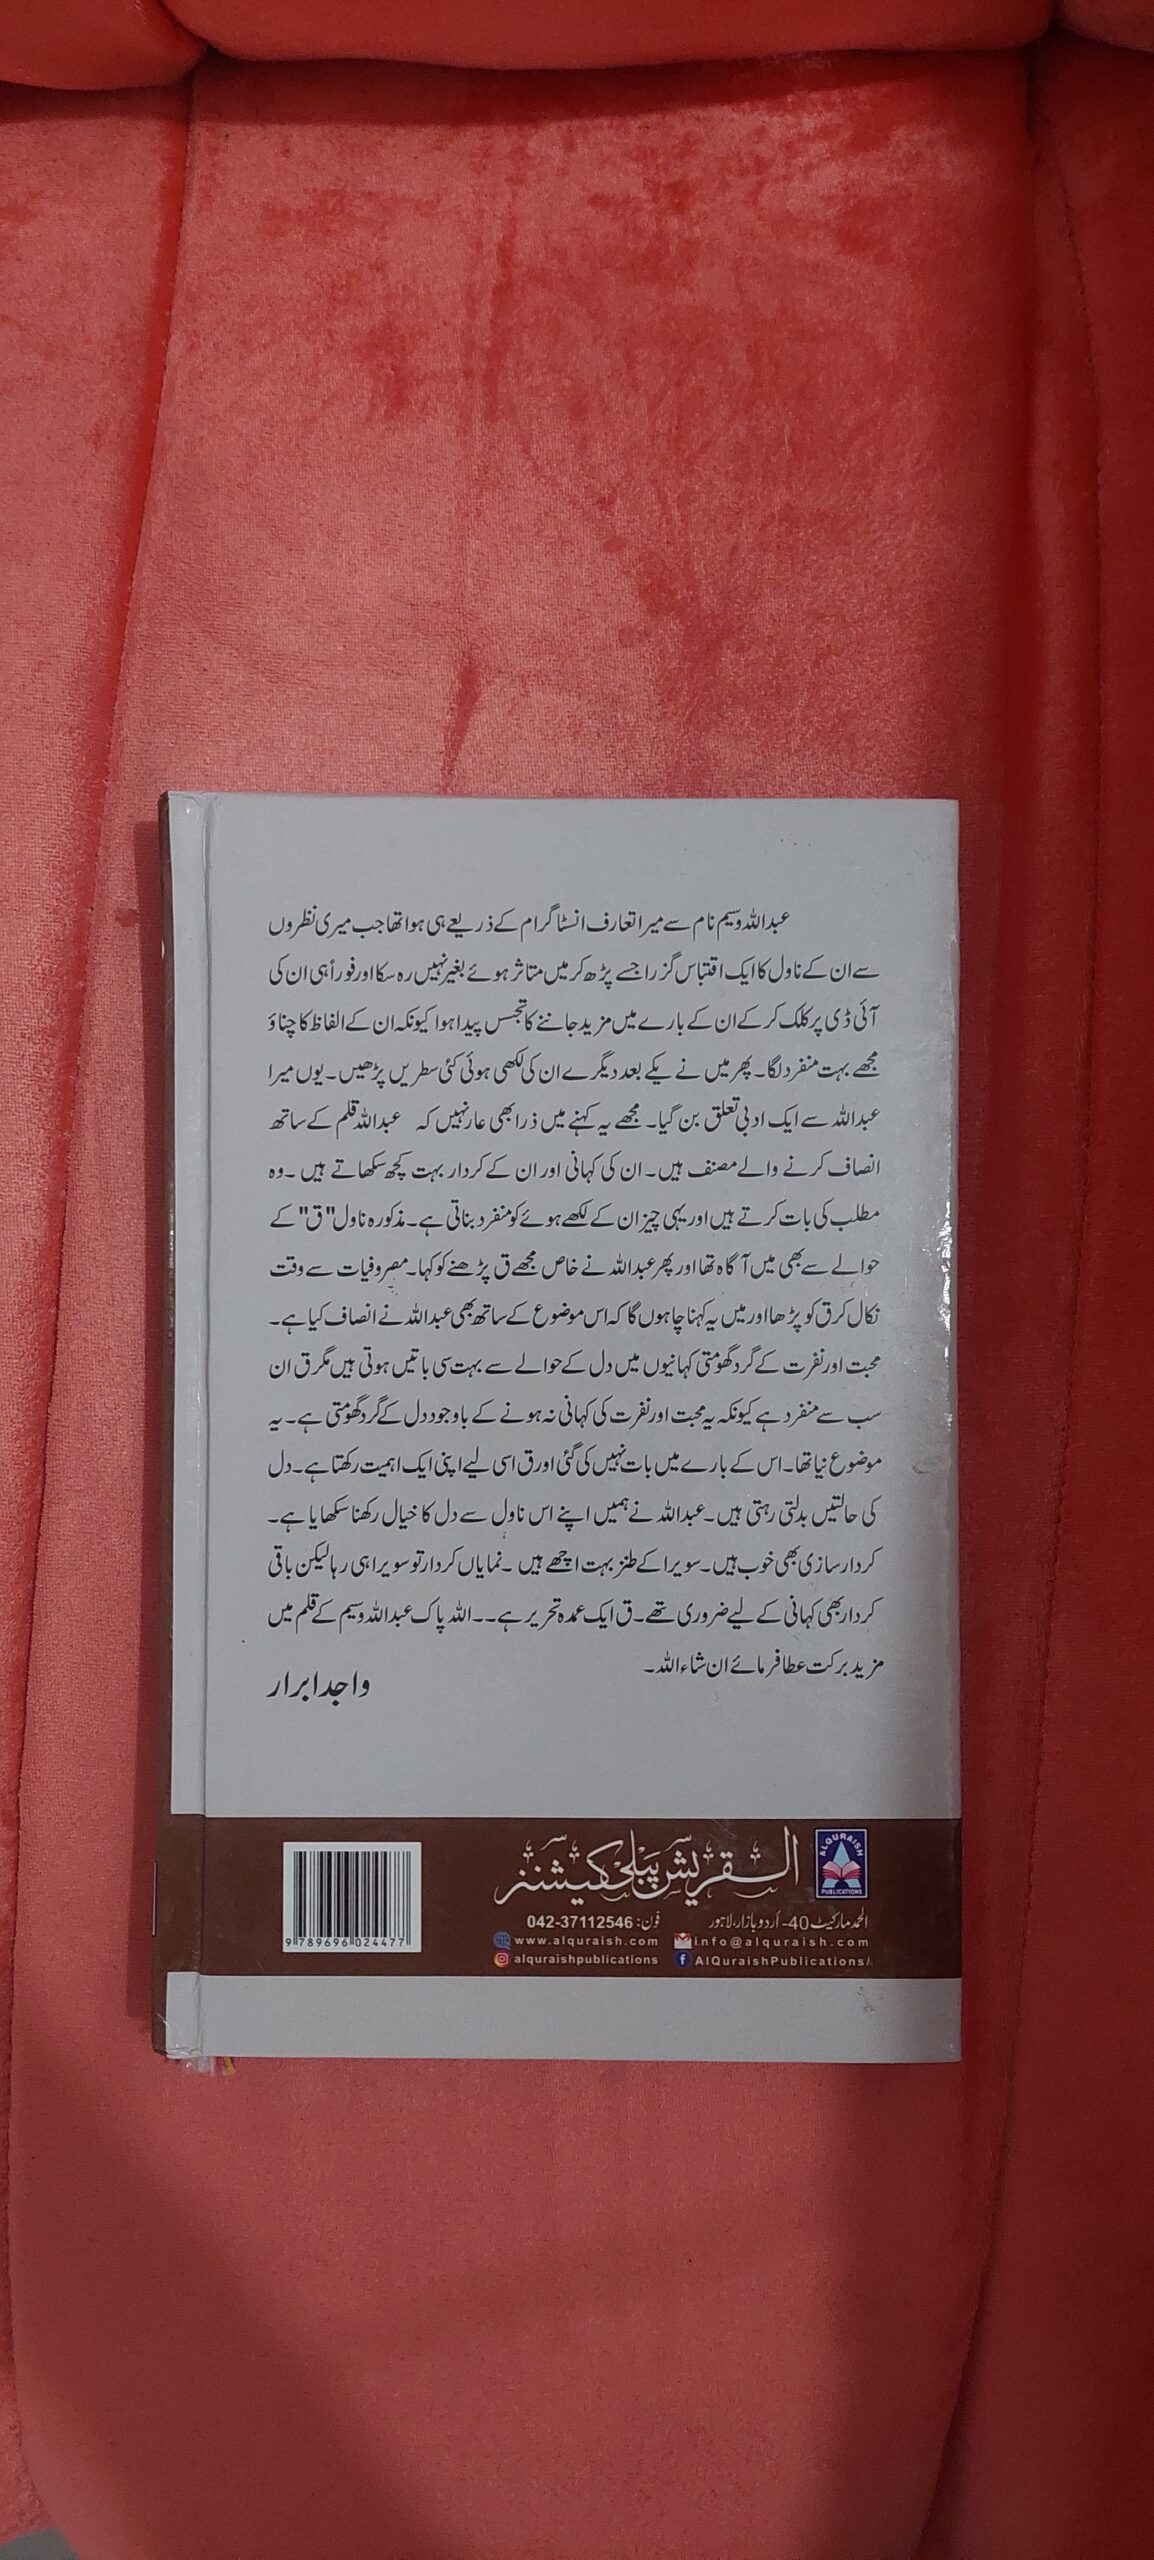 عبداللہ وسیم نام سے میرا تعارف انسٹا گرام کے ذریعے ہی ہوا تھا جب میری نظروں
سے ان کے ناول کا ایک اقتباس گزرا جسے پڑھ کر میں متاثر ہوئے بغیر نہیں رہ سکا اور فوراً ہی ان کی
آئی ڈی پر کلک کر کے ان کے بارے میں مزید جاننے کا تجسس پیدا ہوا کیونکہ ان کے الفاظ کا چناؤ
مجھے بہت منفرد لگا۔ پھر میں نے یکے بعد دیگرے ان کی لکھی ہوئی کئی سطریں پڑھیں۔ یوں میرا
عبداللہ سے ایک ادبی تعلق بن گیا۔ مجھے یہ کہنے میں ذرا بھی عار نہیں کہ عبداللہ قلم کے ساتھ
انصاف کرنے والے مصنف ہیں۔ ان کی کہانی اور ان کے کردار بہت کچھ سکھاتے ہیں۔ وہ
مطلب کی بات کرتے ہیں اور یہی چیز ان کے لکھے ہوئے کو منفرد بناتی ہے۔ مذکورہ ناول "ق" کے
حوالے سے بھی میں آگاہ تھا اور پھر عبداللہ نے خاص مجھے ق پڑھنے کو کہا۔ مصروفیات سے وقت
نکال کر ق کو پڑھا اور میں یہ کہنا چاہوں گا کہ اس موضوع کے ساتھ بھی عبداللہ نے انصاف کیا ہے۔
محبت اور نفرت کے گرد گھومتی کہانیوں میں دل کے حوالے سے بہت سی باتیں ہوتی ہیں مگر ق ان
سب سے منفرد ہے کیونکہ یہ محبت اور نفرت کی کہانی نہ ہونے کے باوجود دل کے گرد گھومتی ہے۔ یہ
موضوع نیا تھا۔ اس کے بارے میں بات نہیں کی گئی اور ق اسی لیے اپنی ایک اہمیت رکھتا ہے۔ دل
کی حالتیں بدلتی رہتی ہیں۔ عبداللہ نے ہمیں اپنے اس ناول سے دل کا خیال رکھنا سکھایا ہے۔
کردار سازی بھی خوب ہیں۔ سویرا کے طنز بہت اچھے ہیں۔ نمایاں کردار تو سویرا ہی رہا لیکن باقی
کردار بھی کہانی کے لیے ضروری تھے۔ ق ایک عمدہ تحریر ہے۔۔ اللہ پاک عبداللہ وسیم کے قلم میں
مزید برکت عطا فرمائے ان شاء اللہ۔
واجد ابرار
القریش پبلی کیشنز
ALQURAISH
PUBLICATIONS
الحمد مارکیٹ 40- اُردو بازار، لاہور فون: 042-37112546
www.alquraish.com info@alquraish.com
alquraishpublications AlQuraishPublications/
9 789696 024477